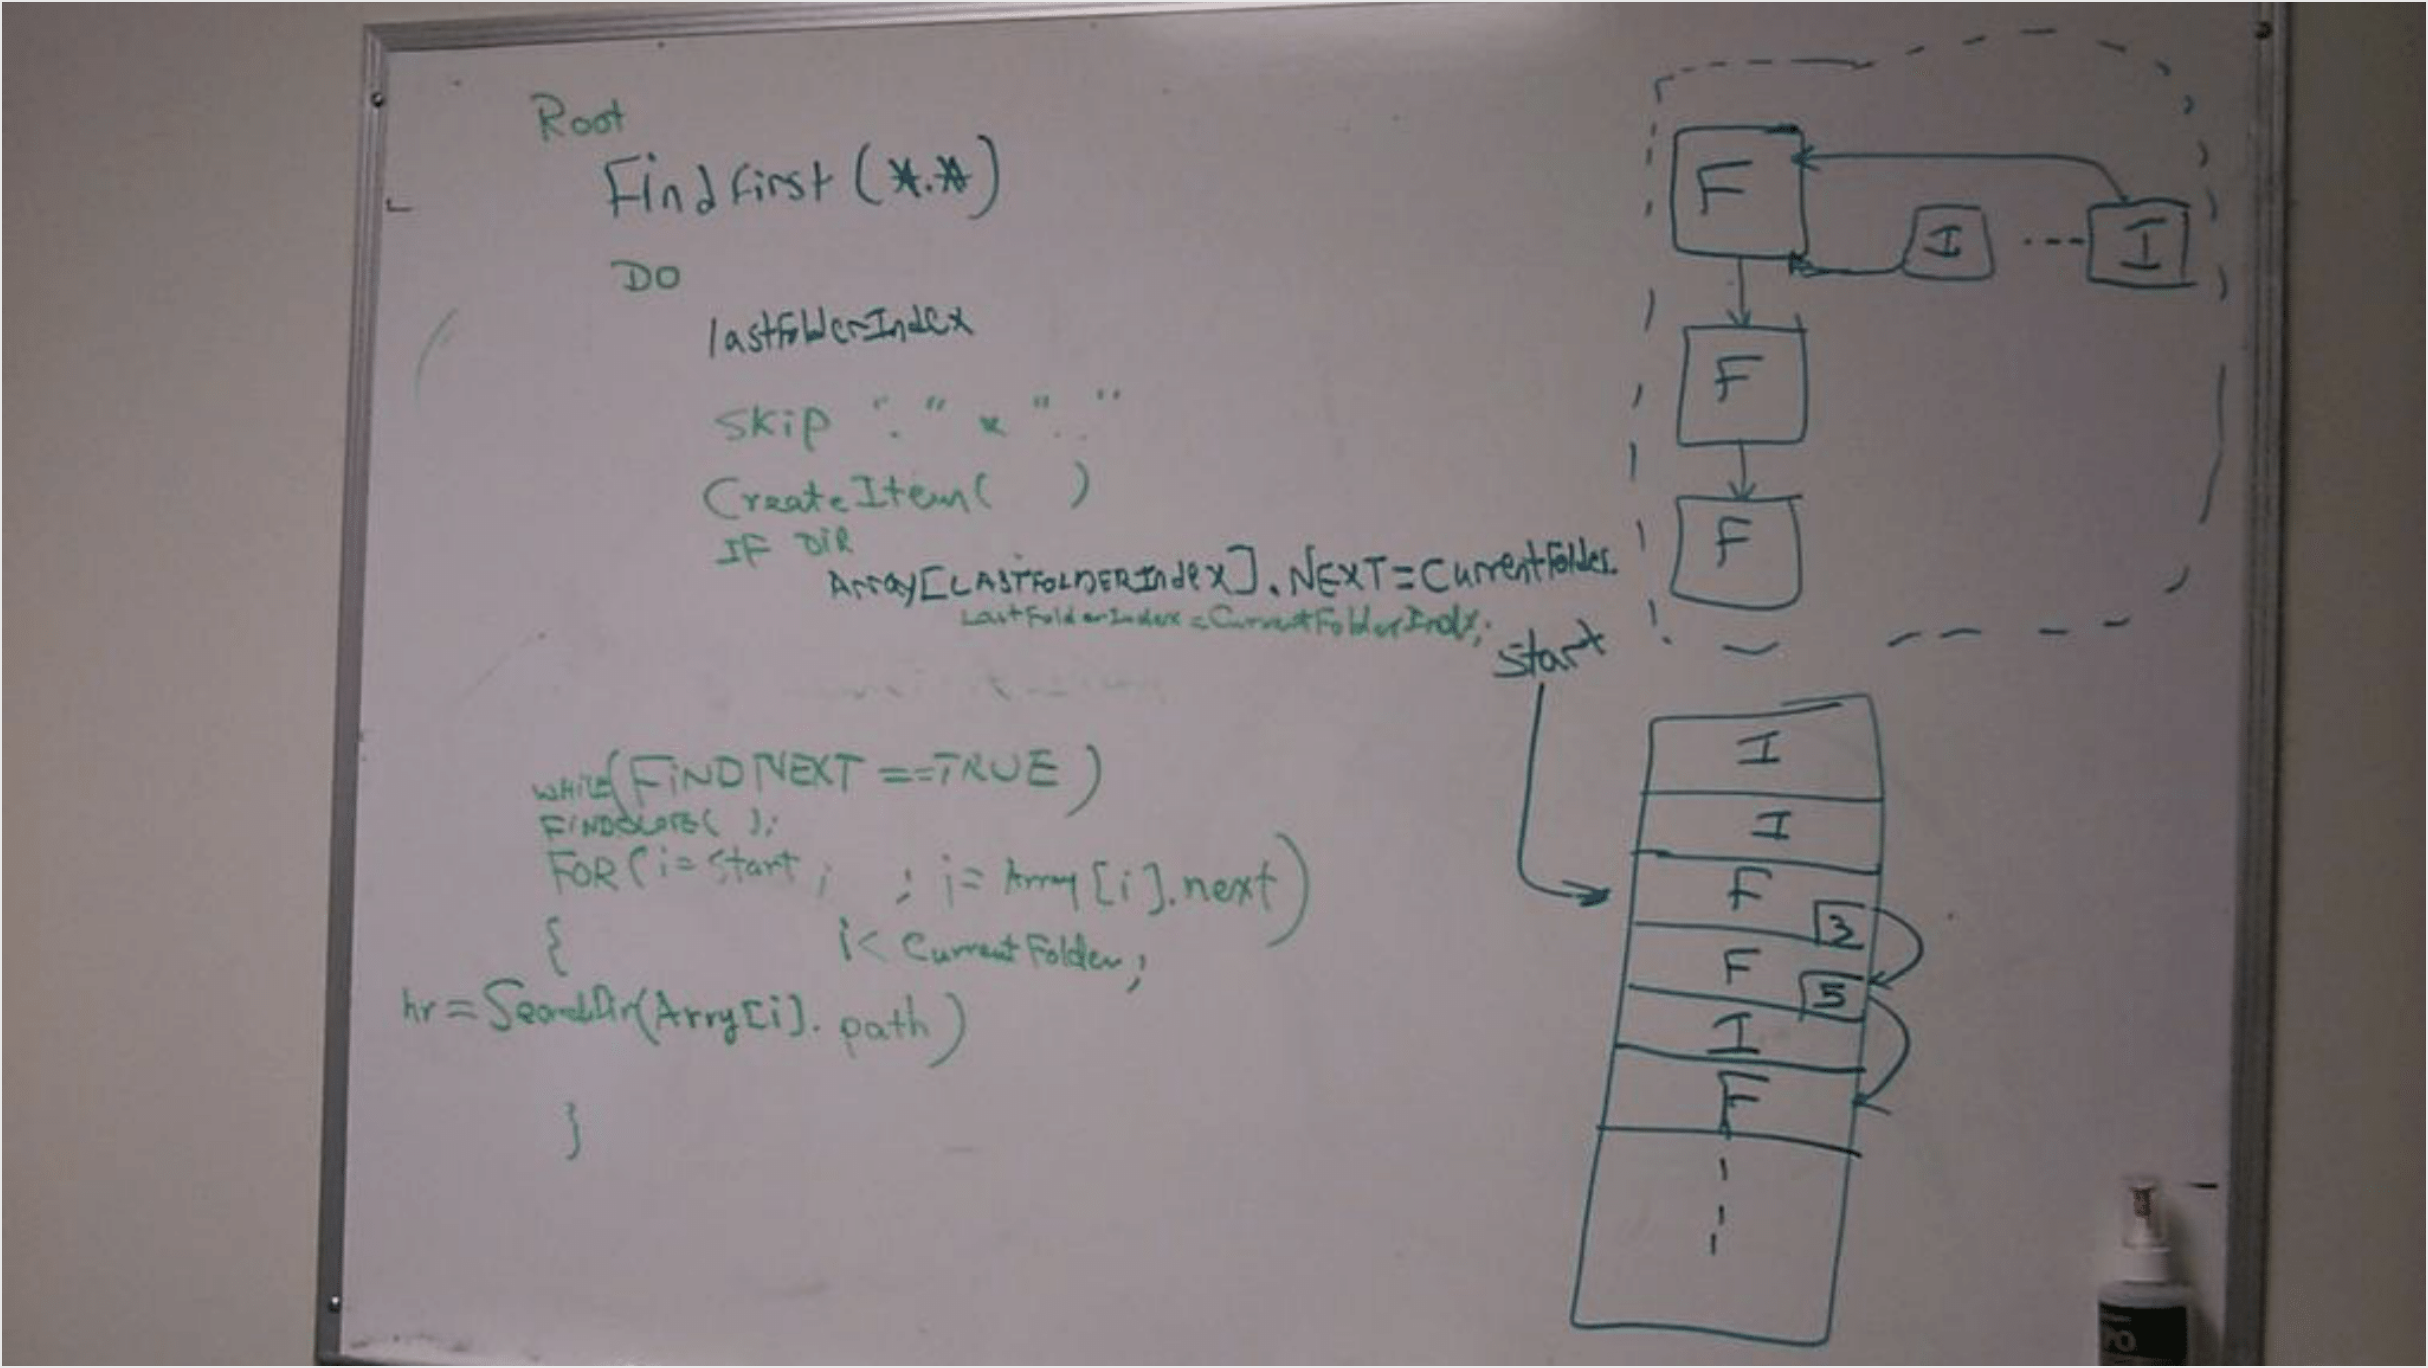 Root
FindFirst(*.*)
DO
lastFolderIndex
Skip "." & ".."
CreateItem( )
IF DIR
Array[LASTFOLDERIndex].NEXT=CurrentFolder.
LastFolderIndex=CurrentFolderIndx;
WHILE(FINDNEXT==TRUE)
FINDCLOSE( );
FOR(i=start; ; i=Array[i].next)
{ i< CurrentFolder;
hr=SearchDir(Array[i].path)
}
F
I --- I
F
F
start
I
I
F 3
F 5
I
F